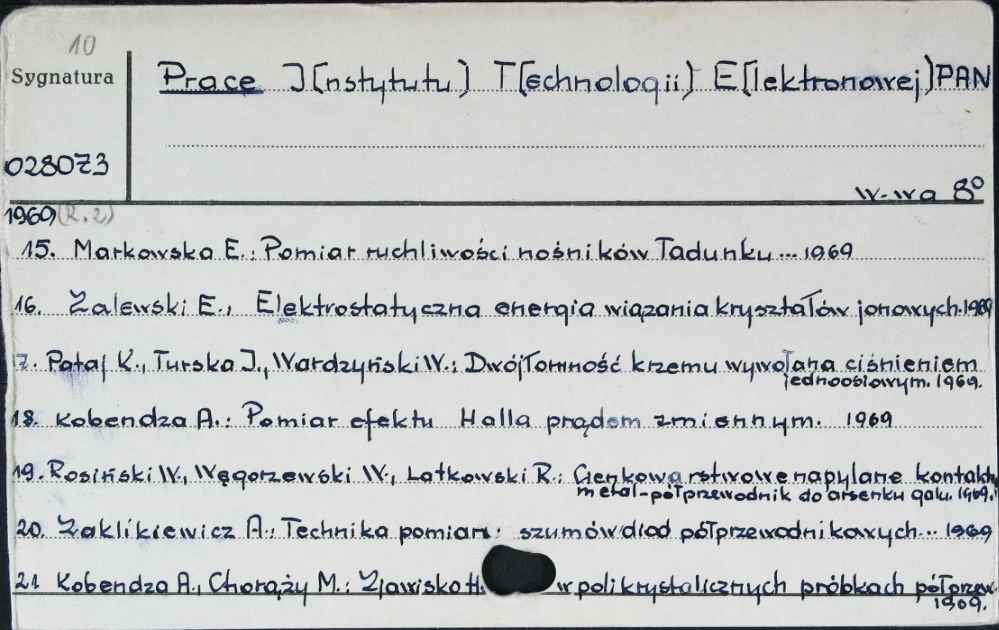 10
Sygnatura
Prace I[nstytutu] T[echnologii] E[lektronowej] PAN
028073
W-wa 8°
1969 (R. 2)
15. Markowska E.: Pomiar ruchliwości nośników ładunku ... 1969
16. Zalewski E., Elektrostatyczna energia wiązania kryształów jonowych. 1969
17. Pataj K., Turska J., Wardzyński W.: Dwójłomność krzemu wywołana ciśnieniem
jednoosiowym. 1969.
18. Kobendza A.: Pomiar efektu Halla prądem zmiennym. 1969
19. Rosiński W., Węgorzewski W., Latkowski R.: Cienkowarstwowe napylane kontakty
metal-półprzewodnik do arsenku galu. 1969.
20. Zaklikiewicz A.: Technika pomiaru szumów diod półprzewodnikowych... 1969
21 Kobendza A., Chorąży M.: Zjawisko H w polikrystalicznych próbkach półprzew.
1969.